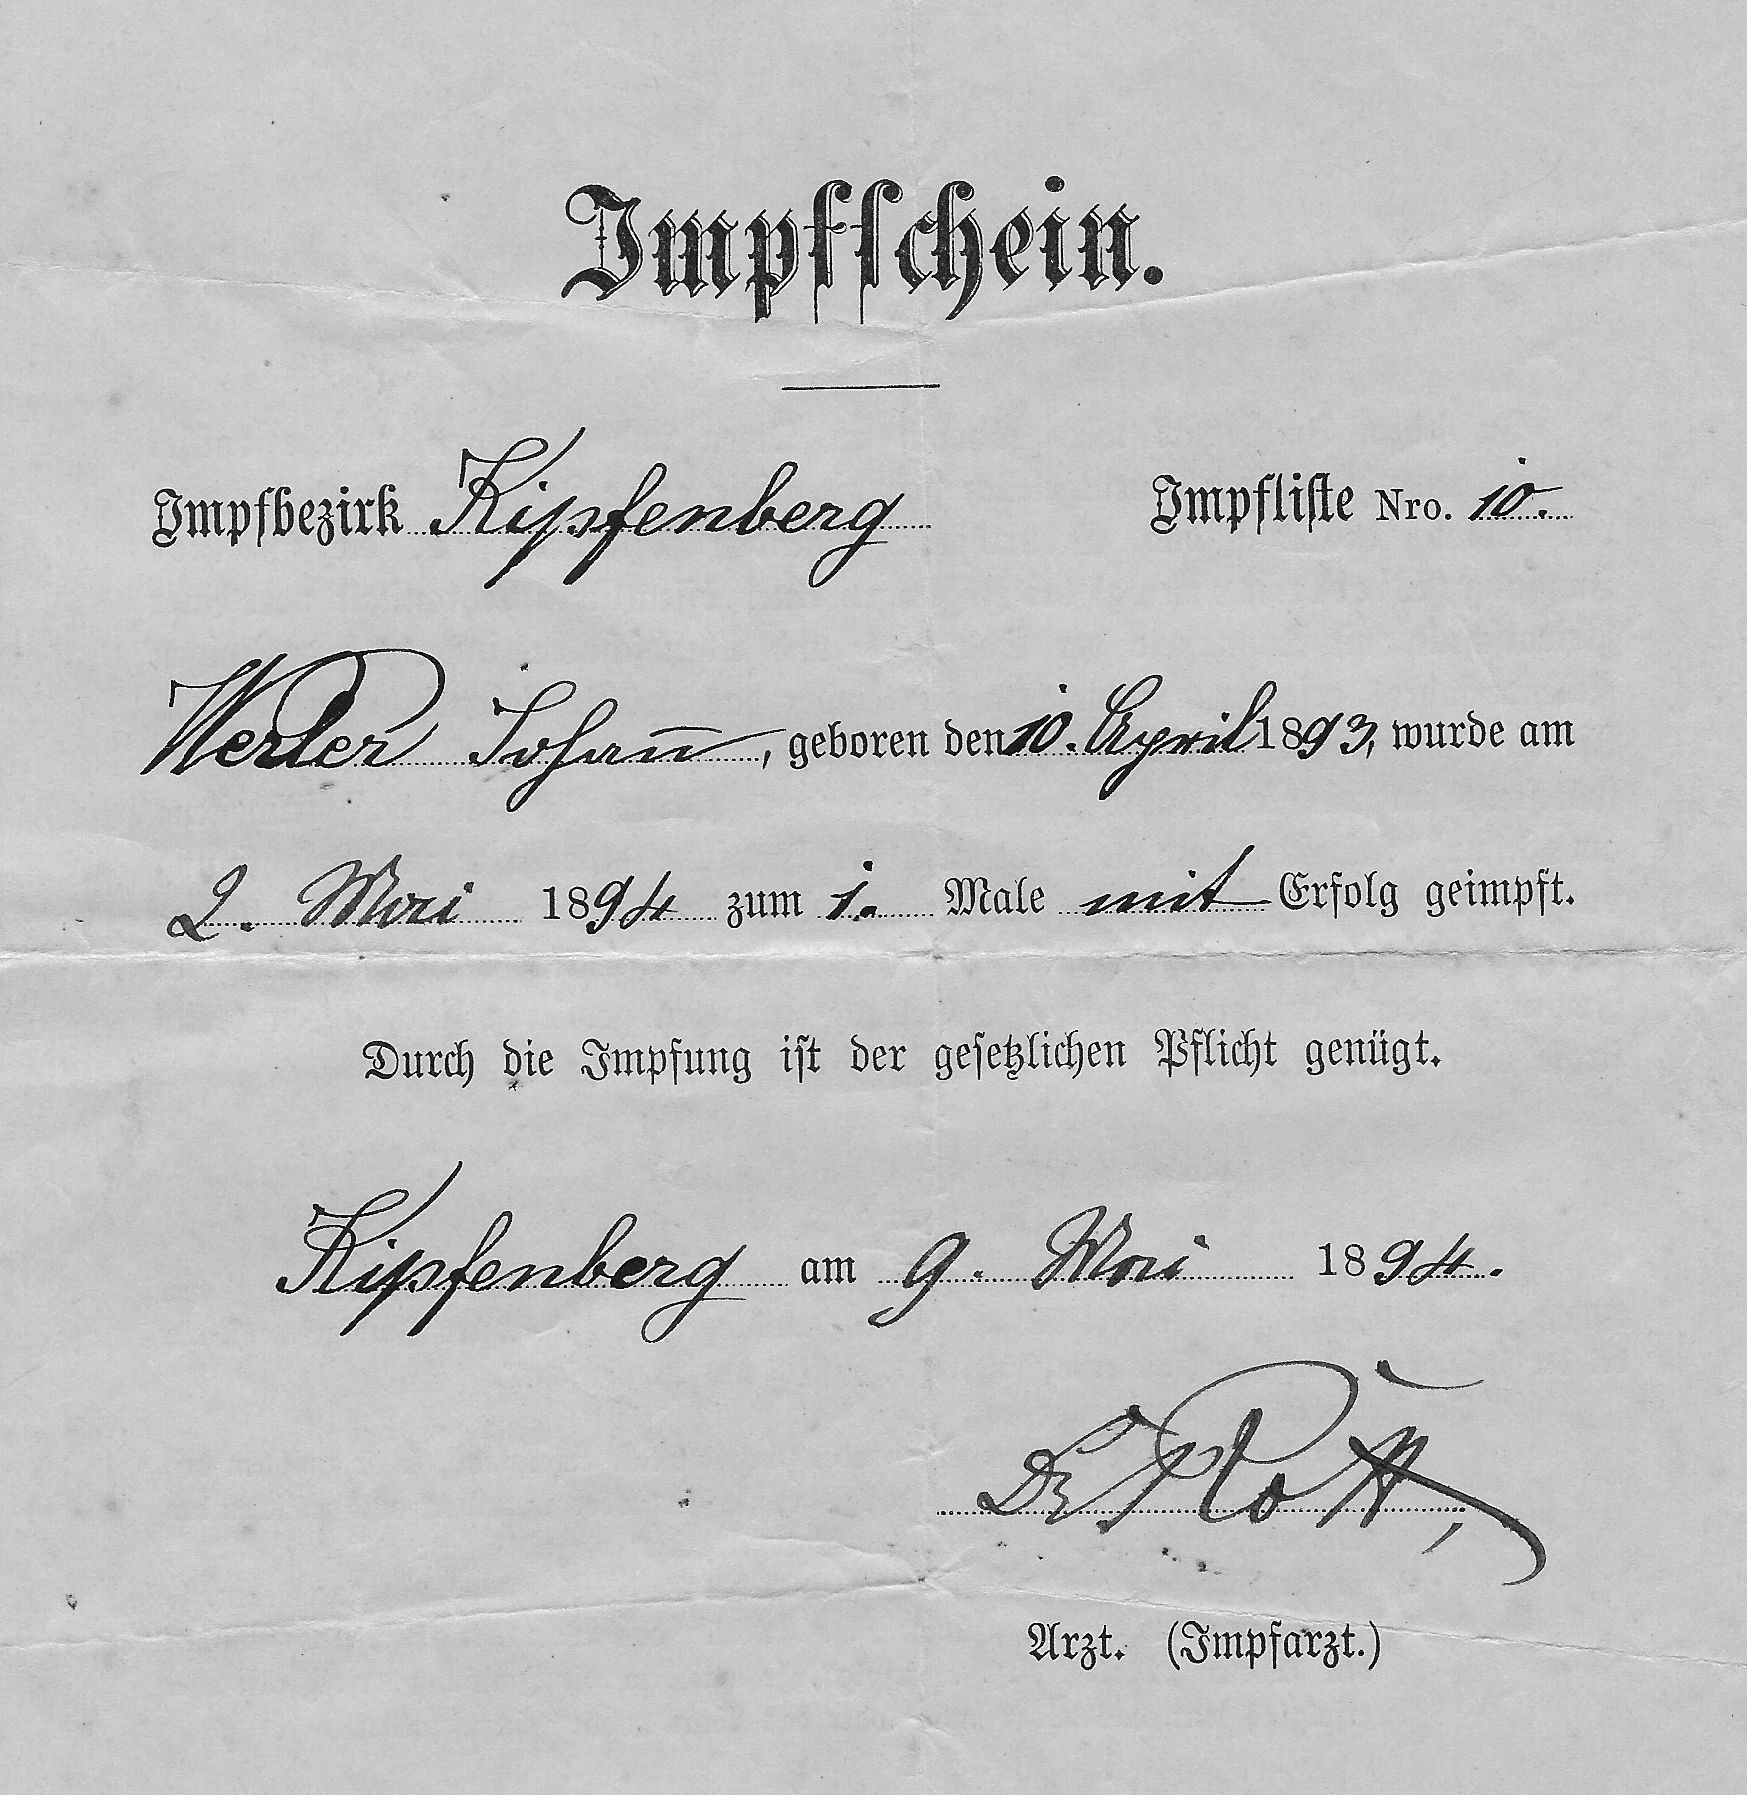 Impfschein.
Impfbezirk Kipfenberg Impfliste Nro. 10.
Werler Johann, geboren den 10. April 1893, wurde am
2. Mai 1894 zum 1. Male mit Erfolg geimpft.
Durch die Impfung ist der gesetzlichen Pflicht genügt.
Kipfenberg am 9. Mai 1894.
Dr Rott,
Arzt. (Impfarzt.)